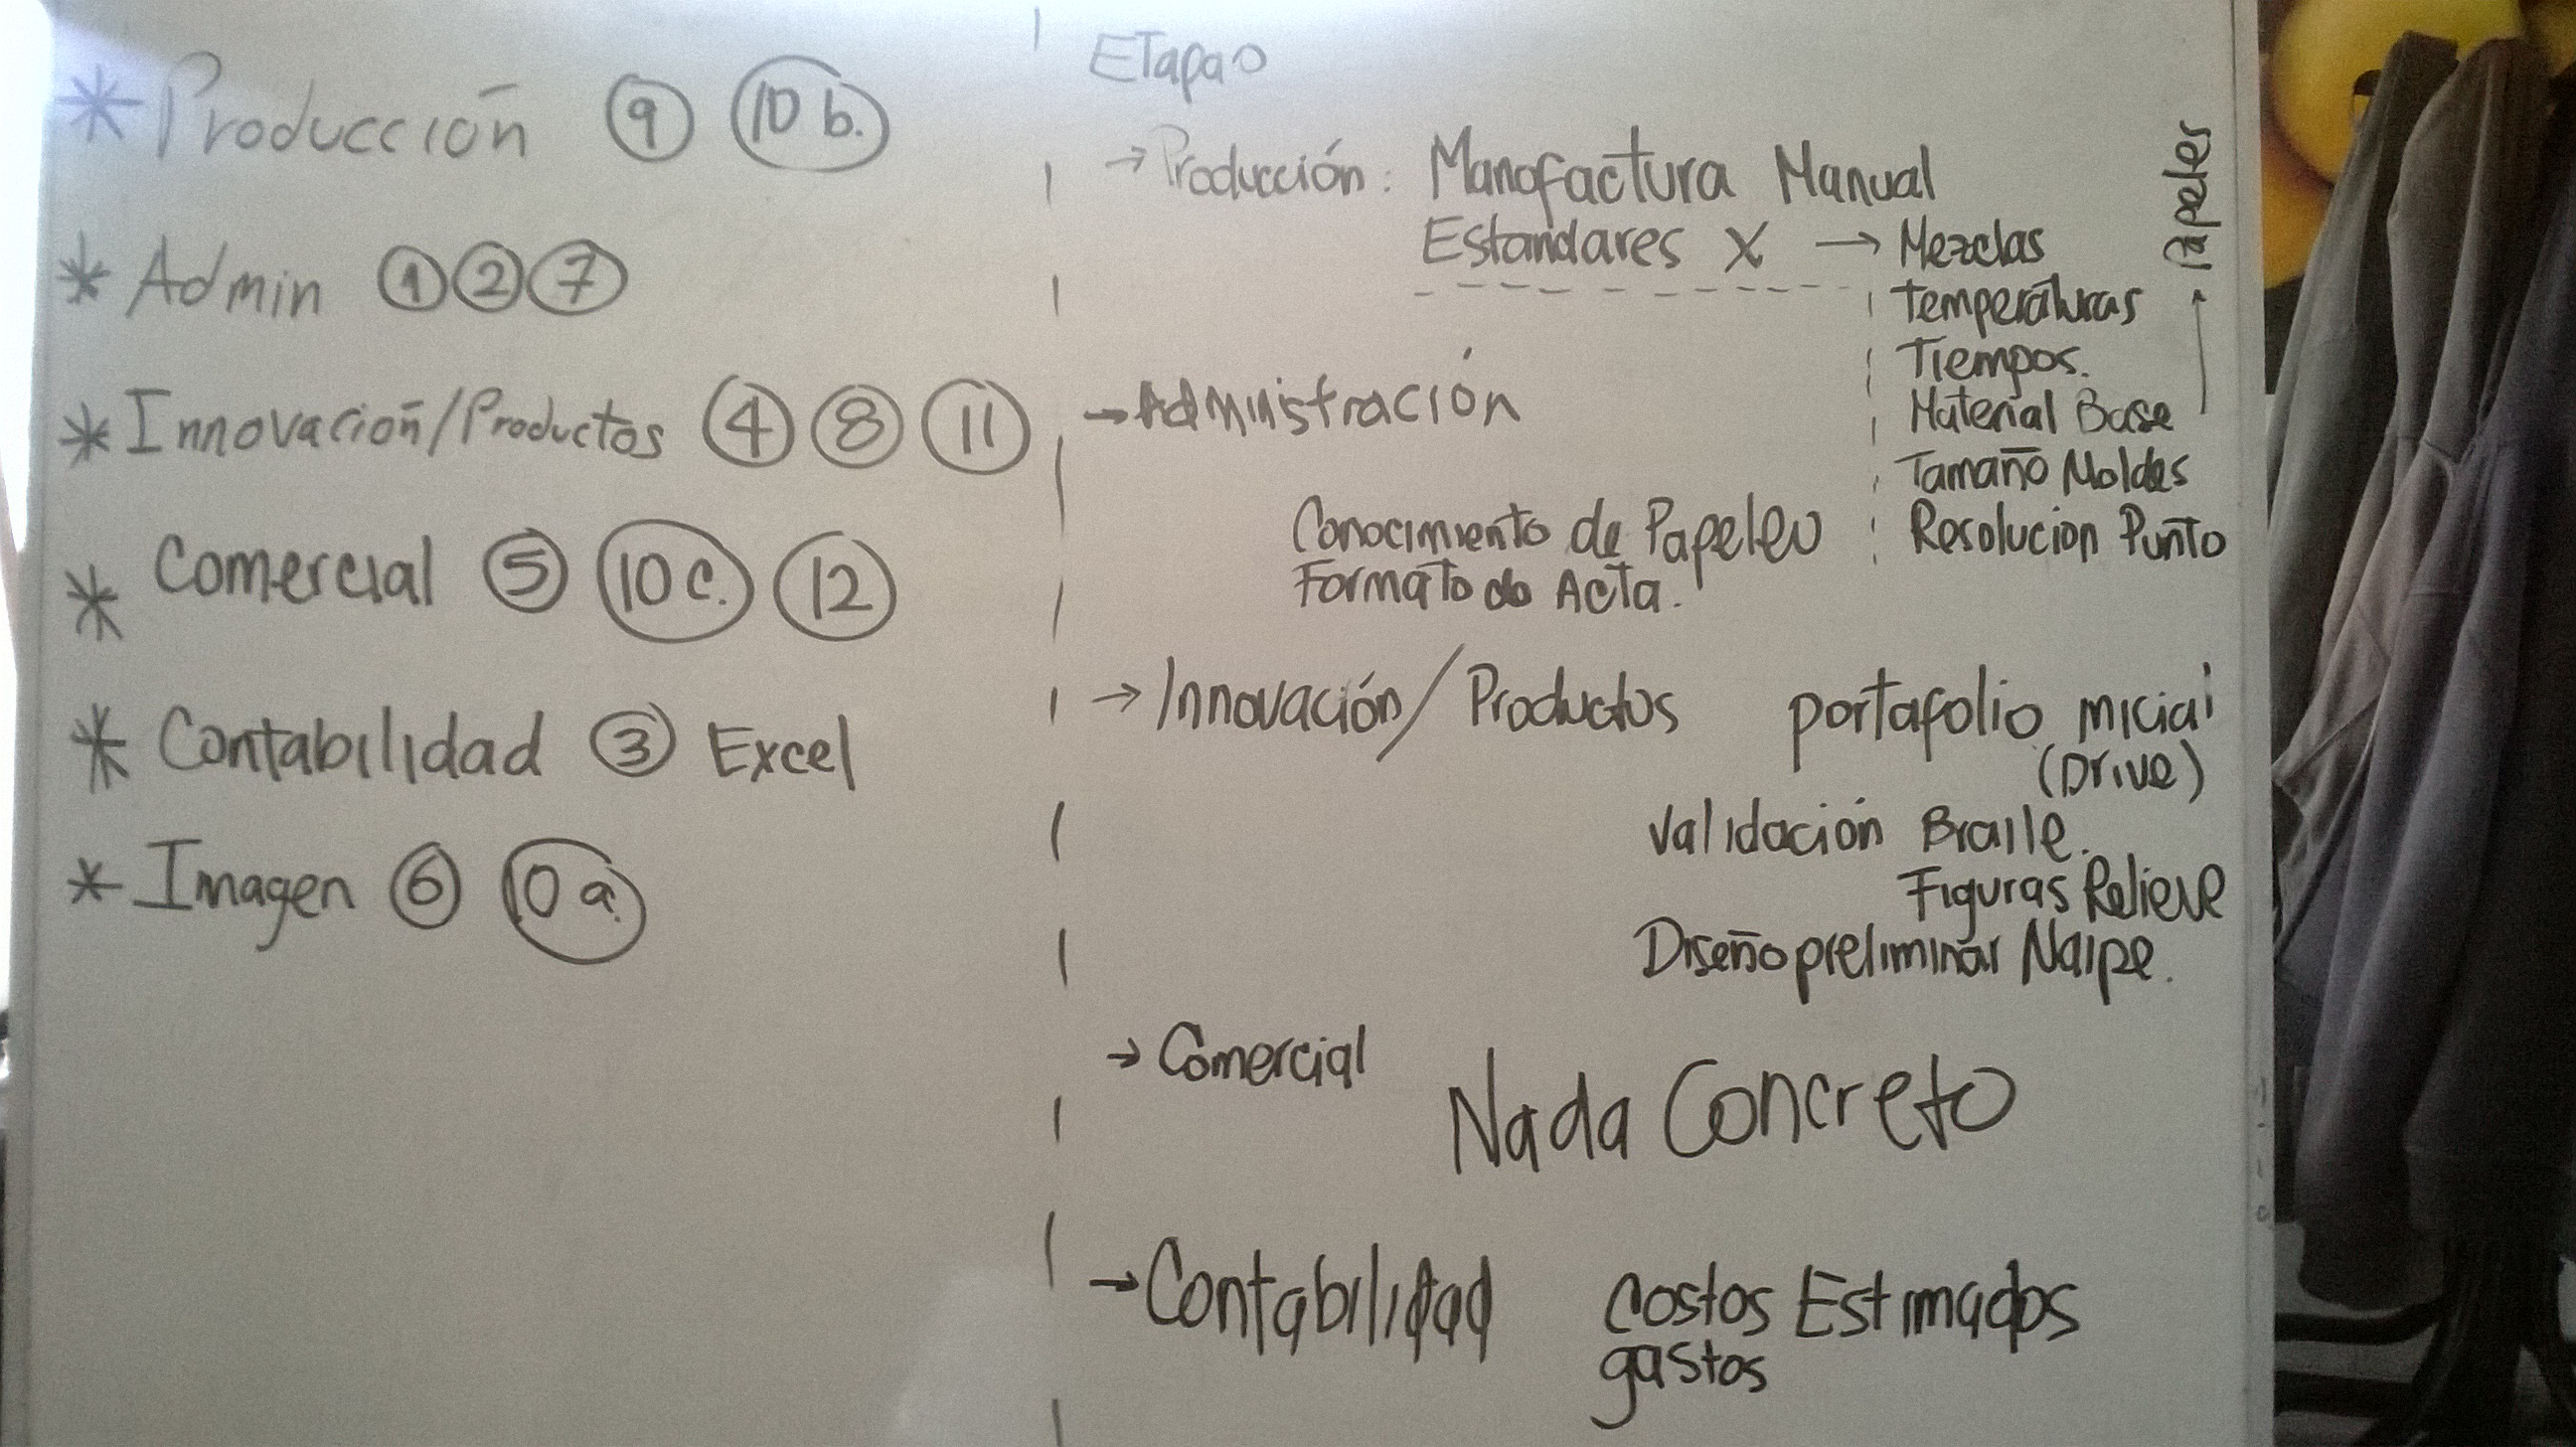 * Producción 9 10 b.
* Admin 1 2 7
* Innovación/Productos 4 8 11
* Comercial 5 10 c. 12
* Contabilidad 3 Excel
* Imagen 6 10 a.
Etapas
→ Producción: Manofactura Manual
Estandares X → Mezclas
Temperaturas
Tiempos.
Material Base → Papeles
Tamaño Moldes
Resolucion Punto
→ Administración
Conocimiento de Papeleo
Formato de Acta.
→ Innovación/Productos portafolio inicial
(Drive)
Validación Braile.
Figuras Relieve
Diseño preliminar Naipe.
→ Comercial
Nada Concreto
→ Contabilidad Costos Estimados
gastos